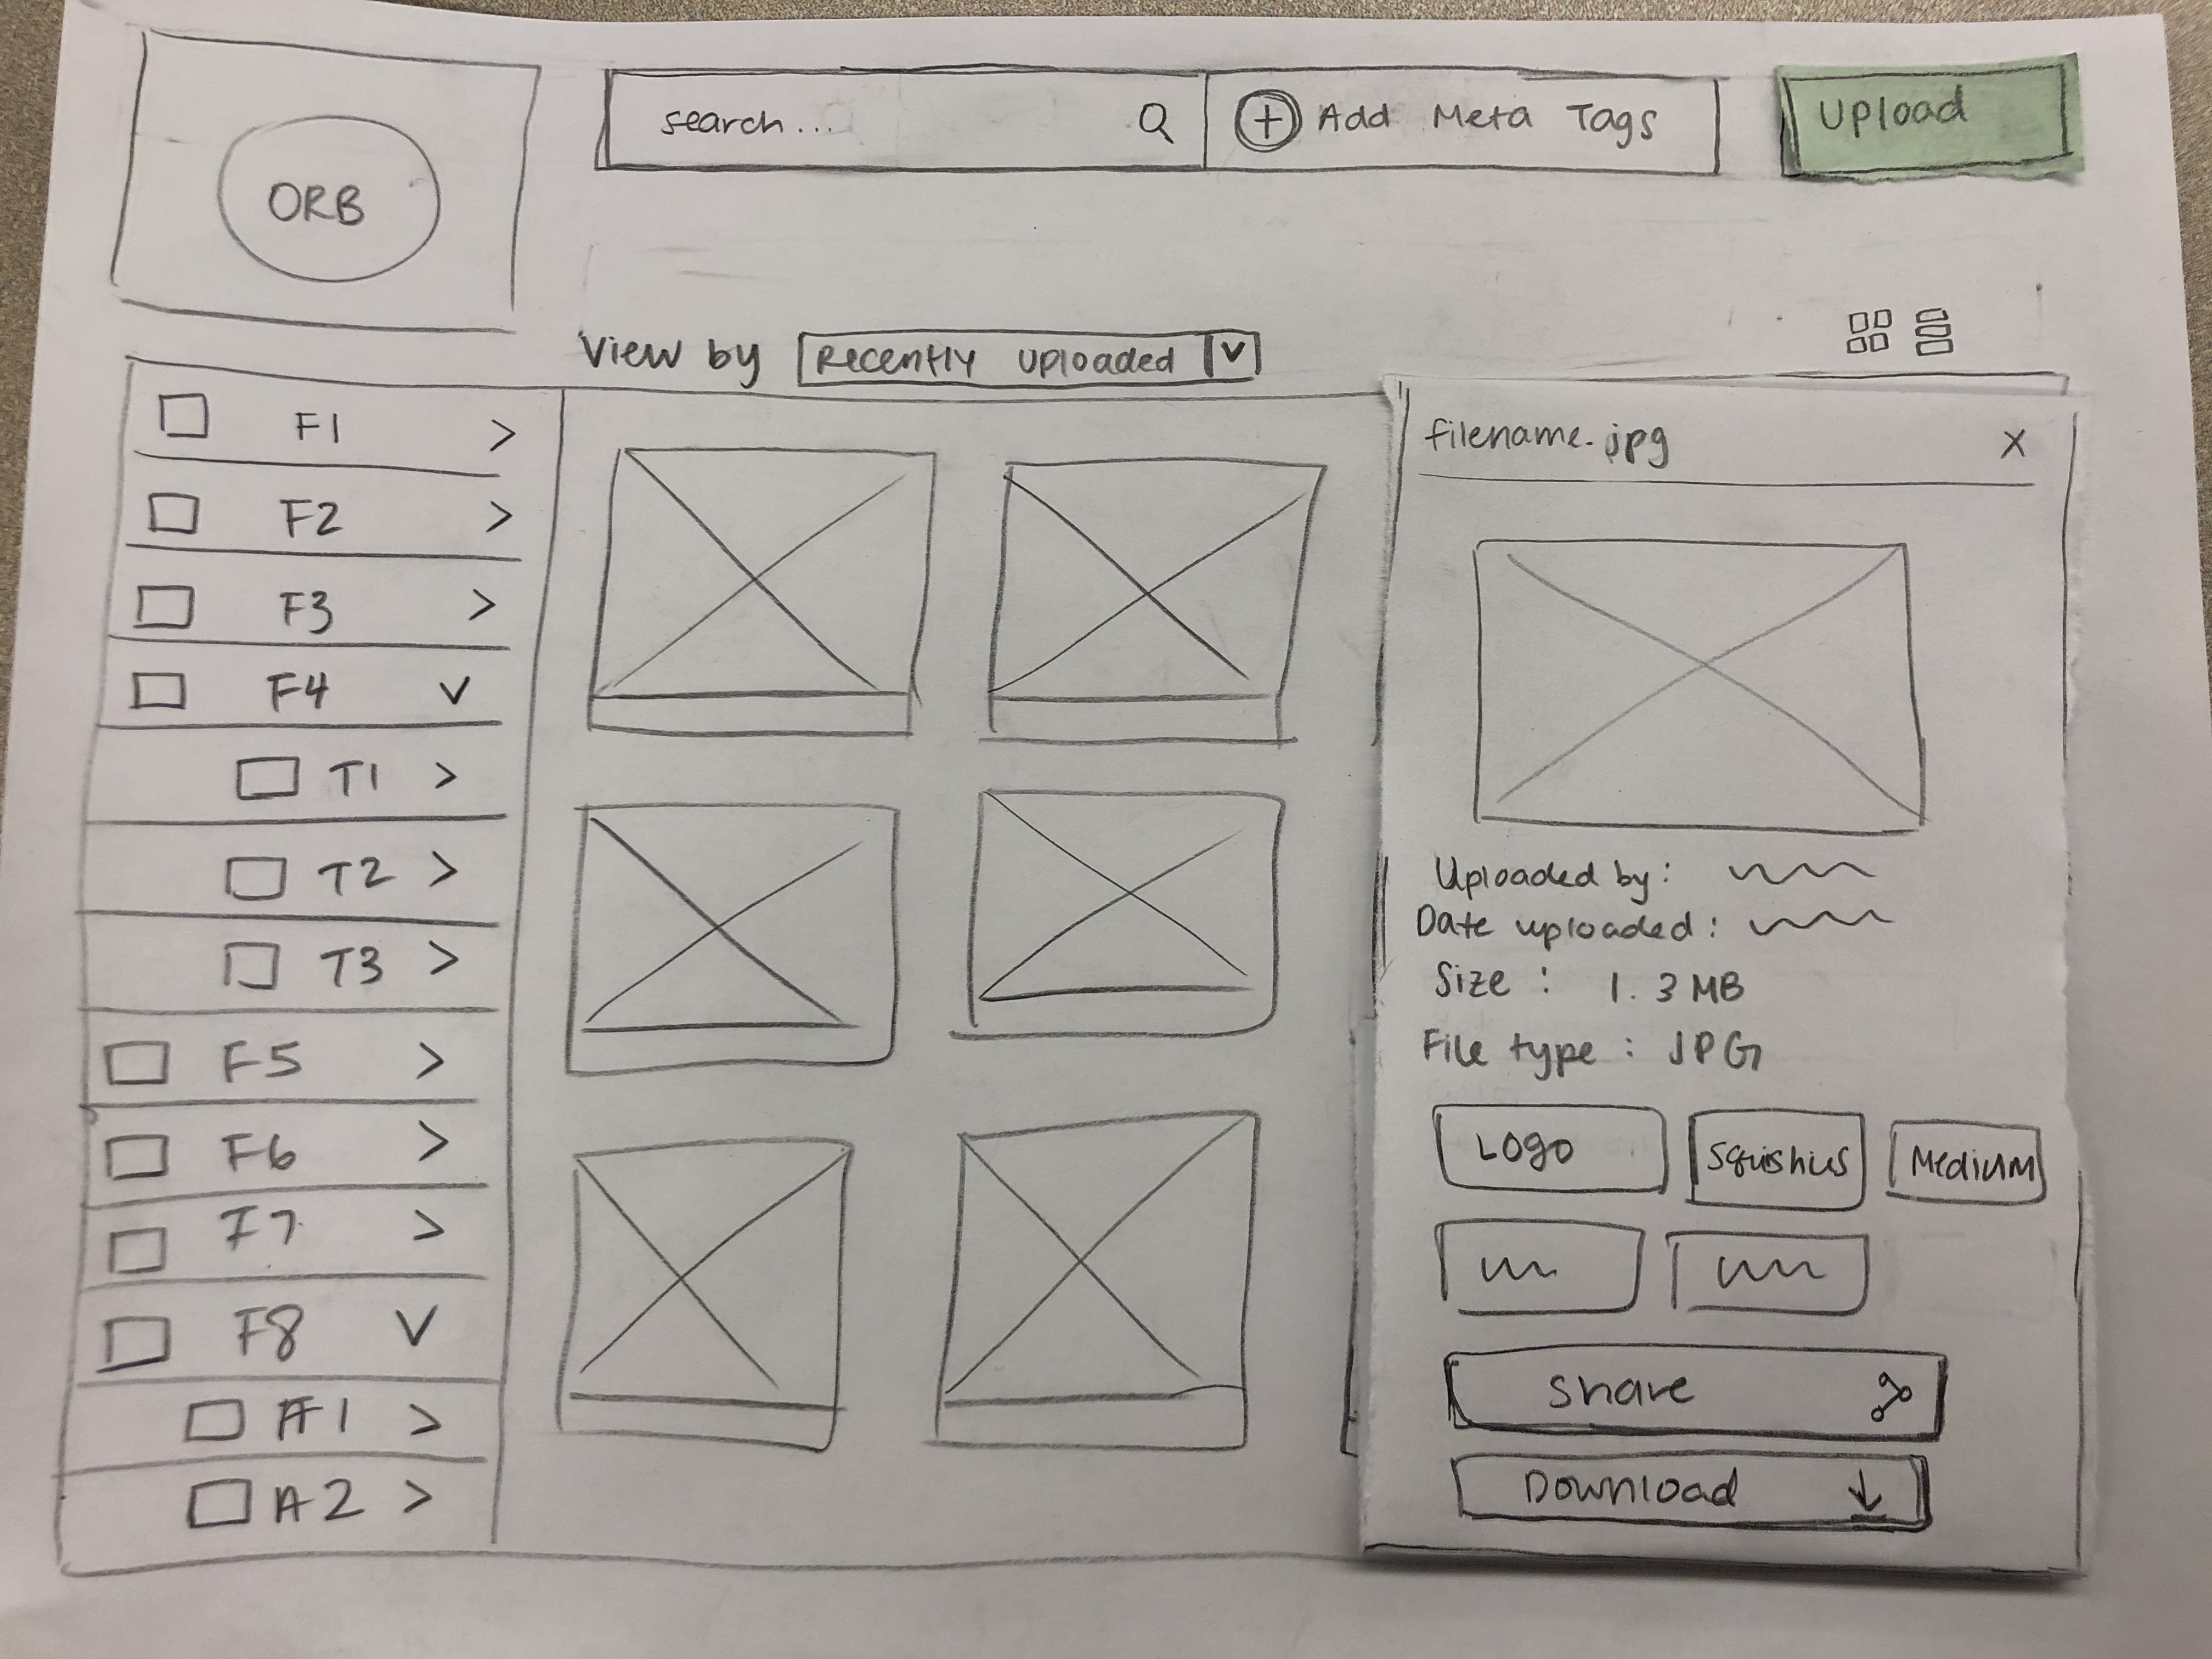 ORB
search...
Add Meta Tags
Upload
View by Recently uploaded
F1
F2
F3
F4
T1
T2
T3
F5
F6
F7
F8
A1
A2
filename.jpg X
Uploaded by:
Date uploaded:
Size: 1.3 MB
File type: JPG
Logo Squishies Medium
Share
Download